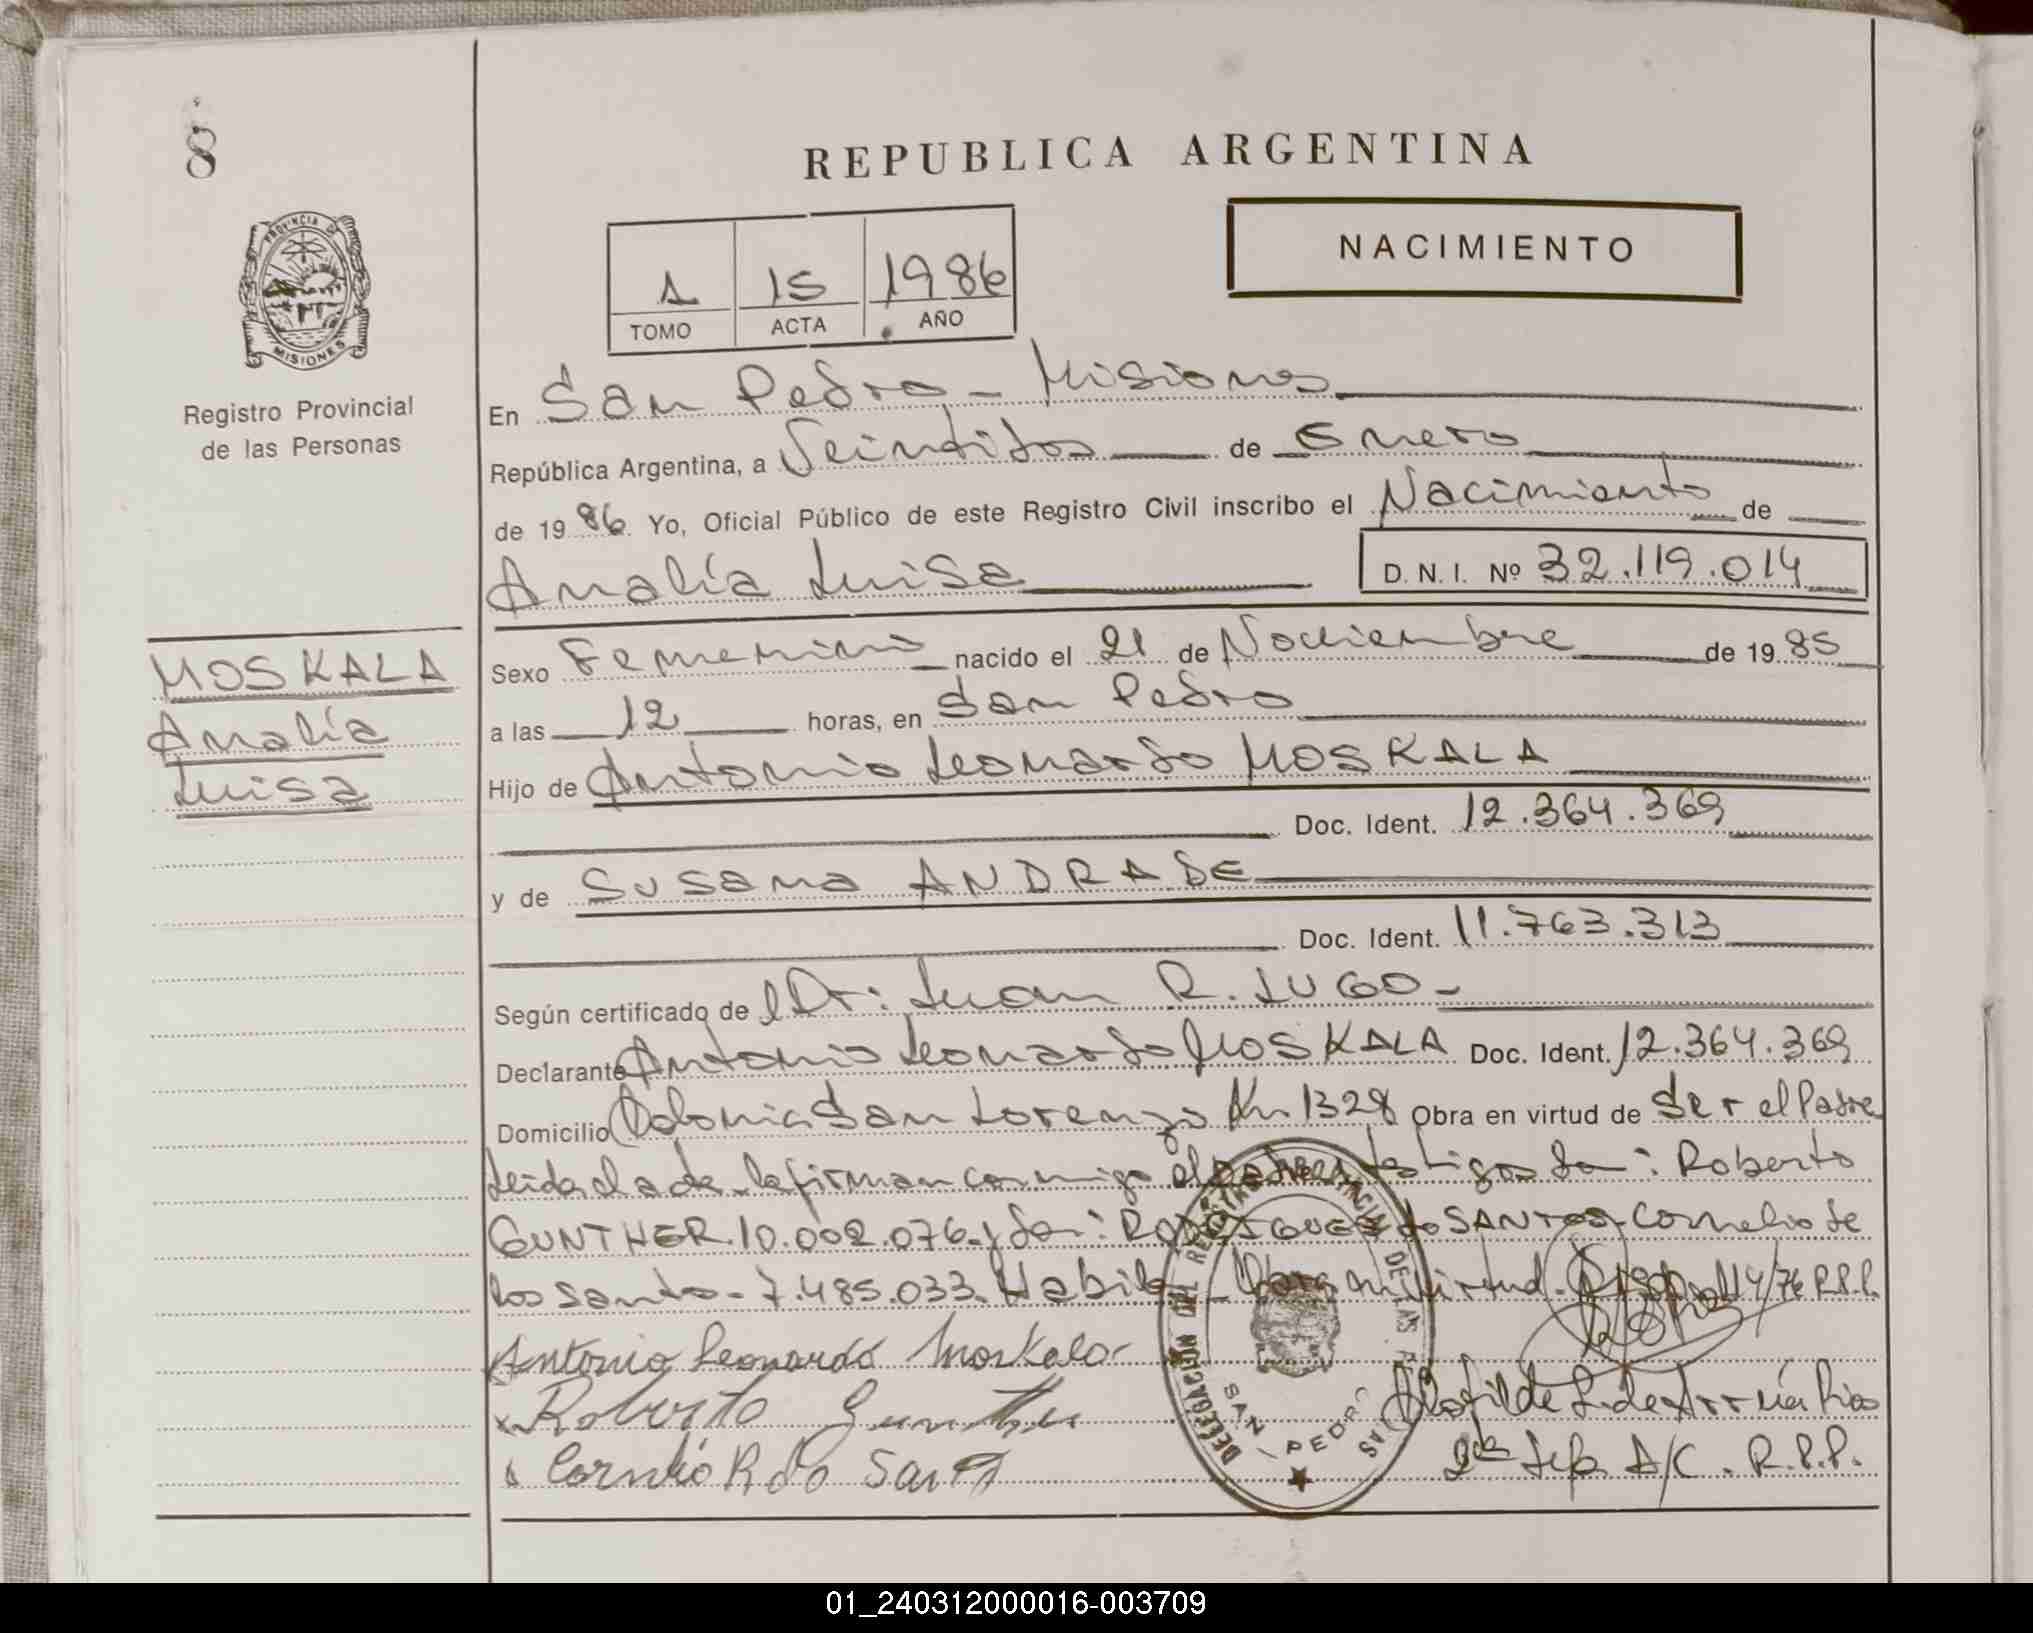 8
REPUBLICA ARGENTINA
NACIMIENTO
1 15 1986
TOMO ACTA AÑO
PROVINCIA DE
MISIONES
Registro Provincial
de las Personas
En San Pedro - Misiones
República Argentina, a Veintidos de Enero
de 1986. Yo, Oficial Público de este Registro Civil inscribo el Nacimiento de
Amalía Luisa D. N. I. Nº 32.119.014
MOSKALA
Amalía
Luisa
Sexo Femenino nacido el 21 de Noviembre de 1985
a las 12 horas, en San Pedro
Hijo de Antonio Leonardo MOSKALA
Doc. Ident. 12.364.369
y de Susana ANDRADE
Doc. Ident. 11.763.313
Según certificado de l Dr: Juan R. LUGO-
Declarante Antonio Leonardo MOSKALA Doc. Ident. 12.364.369
Domicilio Colonia San Lorenzo Km 1328 Obra en virtud de Ser el Padre
Leida el acta la firman conmigo el padre testigos Sr: Roberto
GUNTHER.10.002.076.y Sr: RODRIGUEZ do SANTOS Cornelio de
los Santo- 7.485.033. Habil Obra en virtud. 14/76 R.P.P.
Antonio Leonardo Moskala
x Roberto Gunther
Cornelio R do San
Clotilde L. de
2da Jefa A/C. R.P.P.
DELEGACION DEL REGISTRO PROVINCIAL DE LAS PERSONAS
SAN PEDRO
01_240312000016-003709